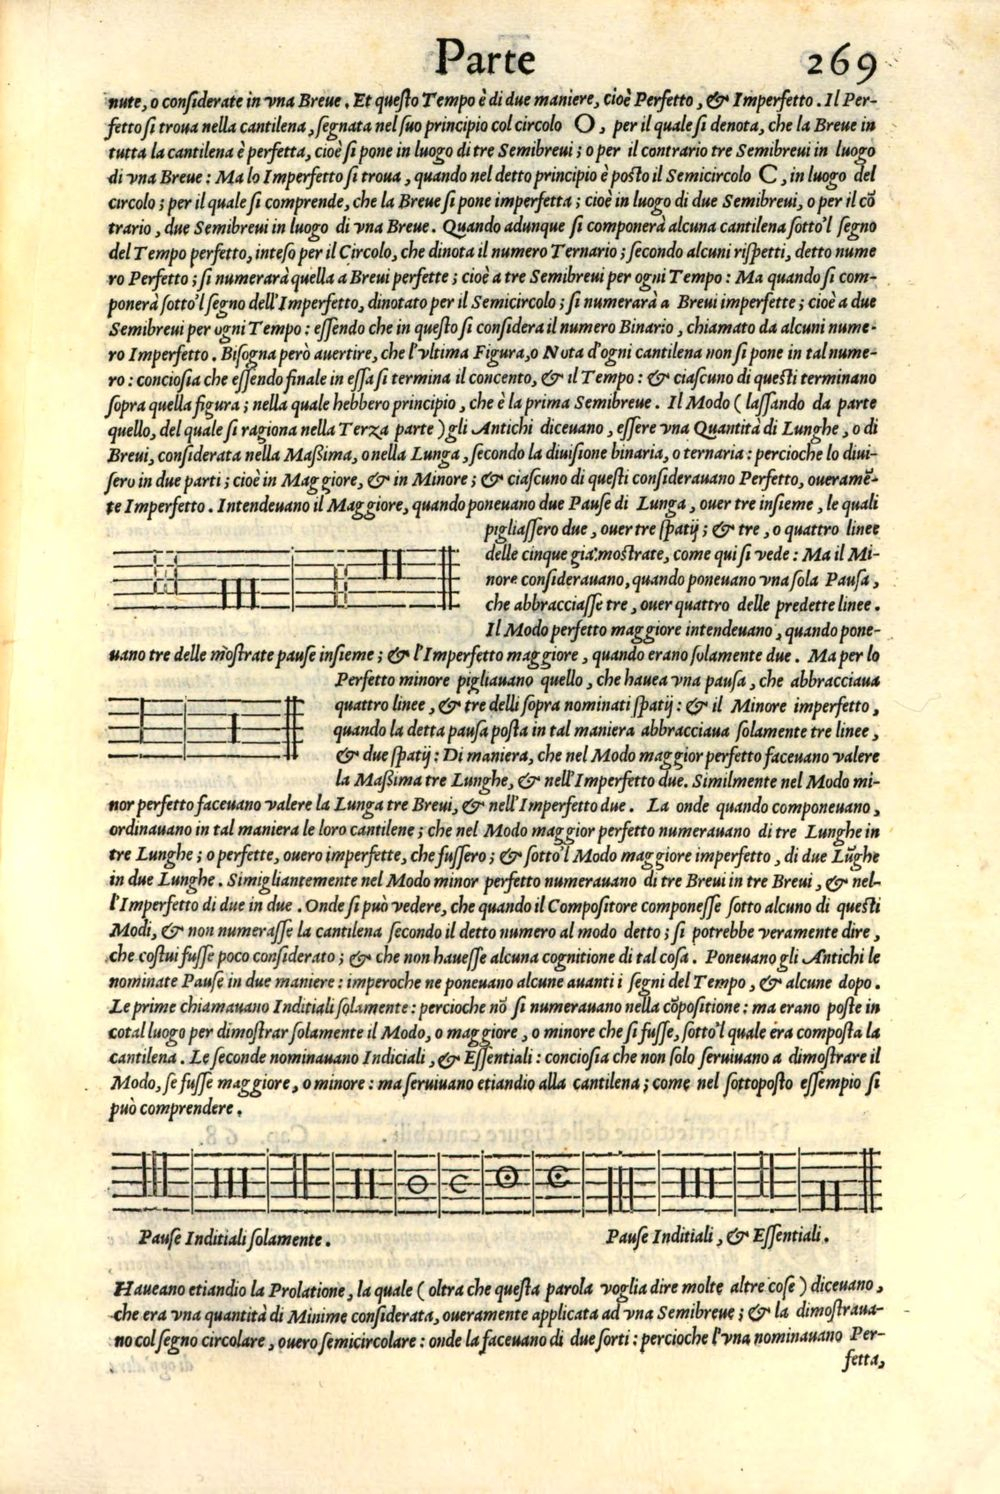 Parte 269
nute, o conſiderate in vna Breue. Et queſto Tempo è di due maniere, cioè Perfetto, & Imperfetto. Il Per-
fetto ſi troua nella cantilena, ſegnata nel ſuo principio col circolo O, per il quale ſi denota, che la Breue in
tutta la cantilena è perfetta, cioè ſi pone in luogo di tre Semibreui; o per il contrario tre Semibreui in luogo
di vna Breue: Ma lo Imperfetto ſi troua, quando nel detto principio è poſto il Semicircolo C, in luogo del
circolo; per il quale ſi comprende, che la Breue ſi pone imperfetta; cioè in luogo di due Semibreui, o per il cō
trario, due Semibreui in luogo di vna Breue. Quando adunque ſi componerà alcuna cantilena ſotto'l ſegno
del Tempo perfetto, inteſo per il Circolo, che dinota il numero Ternario; ſecondo alcuni riſpetti, detto nume
ro Perfetto; ſi numerarà quella a Breui perfette; cioè a tre Semibreui per ogni Tempo: Ma quando ſi com-
ponerà ſotto'l ſegno dell'Imperfetto, dinotato per il Semicircolo; ſi numerarà a Breui imperfette; cioè a due
Semibreui per ogni Tempo: eſſendo che in queſto ſi conſidera il numero Binario, chiamato da alcuni nume-
ro Imperfetto. Biſogna però auertire, che l'vltima Figura, o Nota d'ogni cantilena non ſi pone in tal nume-
ro: concioſia che eſſendo finale in eſſa ſi termina il concento, & il Tempo: & ciaſcuno di queſti terminano
ſopra quella figura; nella quale hebbero principio, che è la prima Semibreue. Il Modo (laſſando da parte
quello, del quale ſi ragiona nella Terza parte) gli Antichi diceuano, eſſere vna Quantità di Lunghe, o di
Breui, conſiderata nella Maßima, o nella Lunga, ſecondo la diuiſione binaria, o ternaria: percioche lo diui-
ſero in due parti; cioè in Maggiore, & in Minore; & ciaſcuno di queſti conſiderauano Perfetto, oueramē-
te Imperfetto. Intendeuano il Maggiore, quando poneuano due Pauſe di Lunga, ouer tre inſieme, le quali
pigliaſſero due, ouer tre ſpatij; & tre, o quattro linee
delle cinque gia moſtrate, come qui ſi vede: Ma il Mi-
nore conſiderauano, quando poneuano vna ſola Pauſa,
che abbracciaſſe tre, ouer quattro delle predette linee.
Il Modo perfetto maggiore intendeuano, quando pone-
uano tre delle moſtrate pauſe inſieme; & l'Imperfetto maggiore, quando erano ſolamente due. Ma per lo
Perfetto minore pigliauano quello, che hauea vna pauſa, che abbracciaua
quattro linee, & tre delli ſopra nominati ſpatij: & il Minore imperfetto,
quando la detta pauſa poſta in tal maniera abbracciaua ſolamente tre linee,
& due ſpatij: Di maniera, che nel Modo maggior perfetto faceuano valere
la Maßima tre Lunghe, & nell'Imperfetto due. Similmente nel Modo mi-
nor perfetto faceuano valere la Lunga tre Breui, & nell'Imperfetto due. La onde quando componeuano,
ordinauano in tal maniera le loro cantilene; che nel Modo maggior perfetto numerauano di tre Lunghe in
tre Lunghe; o perfette, ouero imperfette, che fuſſero; & ſotto'l Modo maggiore imperfetto, di due Lūghe
in due Lunghe. Simigliantemente nel Modo minor perfetto numerauano di tre Breui in tre Breui, & nel-
l'Imperfetto di due in due. Onde ſi può vedere, che quando il Compoſitore componeſſe ſotto alcuno di queſti
Modi, & non numeraſſe la cantilena ſecondo il detto numero al modo detto; ſi potrebbe veramente dire,
che coſtui fuſſe poco conſiderato; & che non haueſſe alcuna cognitione di tal coſa. Poneuano gli Antichi le
nominate Pauſe in due maniere: imperoche ne poneuano alcune auanti i ſegni del Tempo, & alcune dopo.
Le prime chiamauano Inditiali ſolamente: percioche nō ſi numerauano nella cōpoſitione: ma erano poſte in
cotal luogo per dimoſtrar ſolamente il Modo, o maggiore, o minore che ſi fuſſe, ſotto'l quale era compoſta la
cantilena. Le ſeconde nominauano Indiciali, & Eſſentiali: concioſia che non ſolo ſeruiuano a dimoſtrare il
Modo, ſe fuſſe maggiore, o minore: ma ſeruiuano etiandio alla cantilena; come nel ſottopoſto eſſempio ſi
può comprendere.
Pauſe Inditiali ſolamente. Pauſe Inditiali, & Eſſentiali.
Haueano etiandio la Prolatione, la quale (oltra che queſta parola voglia dire molte altre coſe) diceuano,
che era vna quantità di Minime conſiderata, oueramente applicata ad vna Semibreue; & la dimoſtraua-
no col ſegno circolare, ouero ſemicircolare: onde la faceuano di due ſorti: percioche l'vna nominauano Per-
fetta,